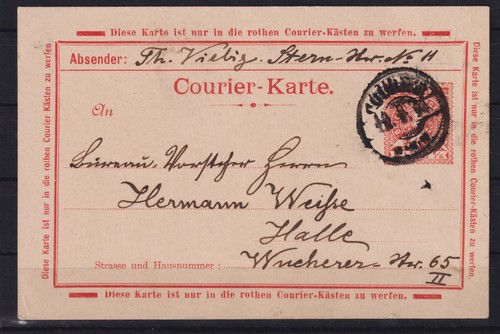 Diese Karte ist nur in die rothen Courier-Kästen zu werfen.
Absender: Th. Viebig. Stern-Str. No 11
Courier-Karte.
An
Bureau-Vorsteher Herrn
Hermann Weiße
Halle
Strasse und Hausnummer: Wucherer-Str. 65
II
Diese Karte ist nur in die rothen Courier-Kästen zu werfen.
Diese Karte ist nur in die rothen Courier-Kästen zu werfen
Diese Karte ist nur in die rothen Courier-Kästen zu werfen